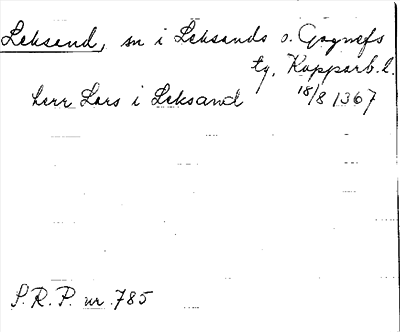 Leksand, sn i Leksands o. Gagnefs
tg, Kopparb. l.
herr Lars i Leksand 18/8 1367
S.R.P. nr 785